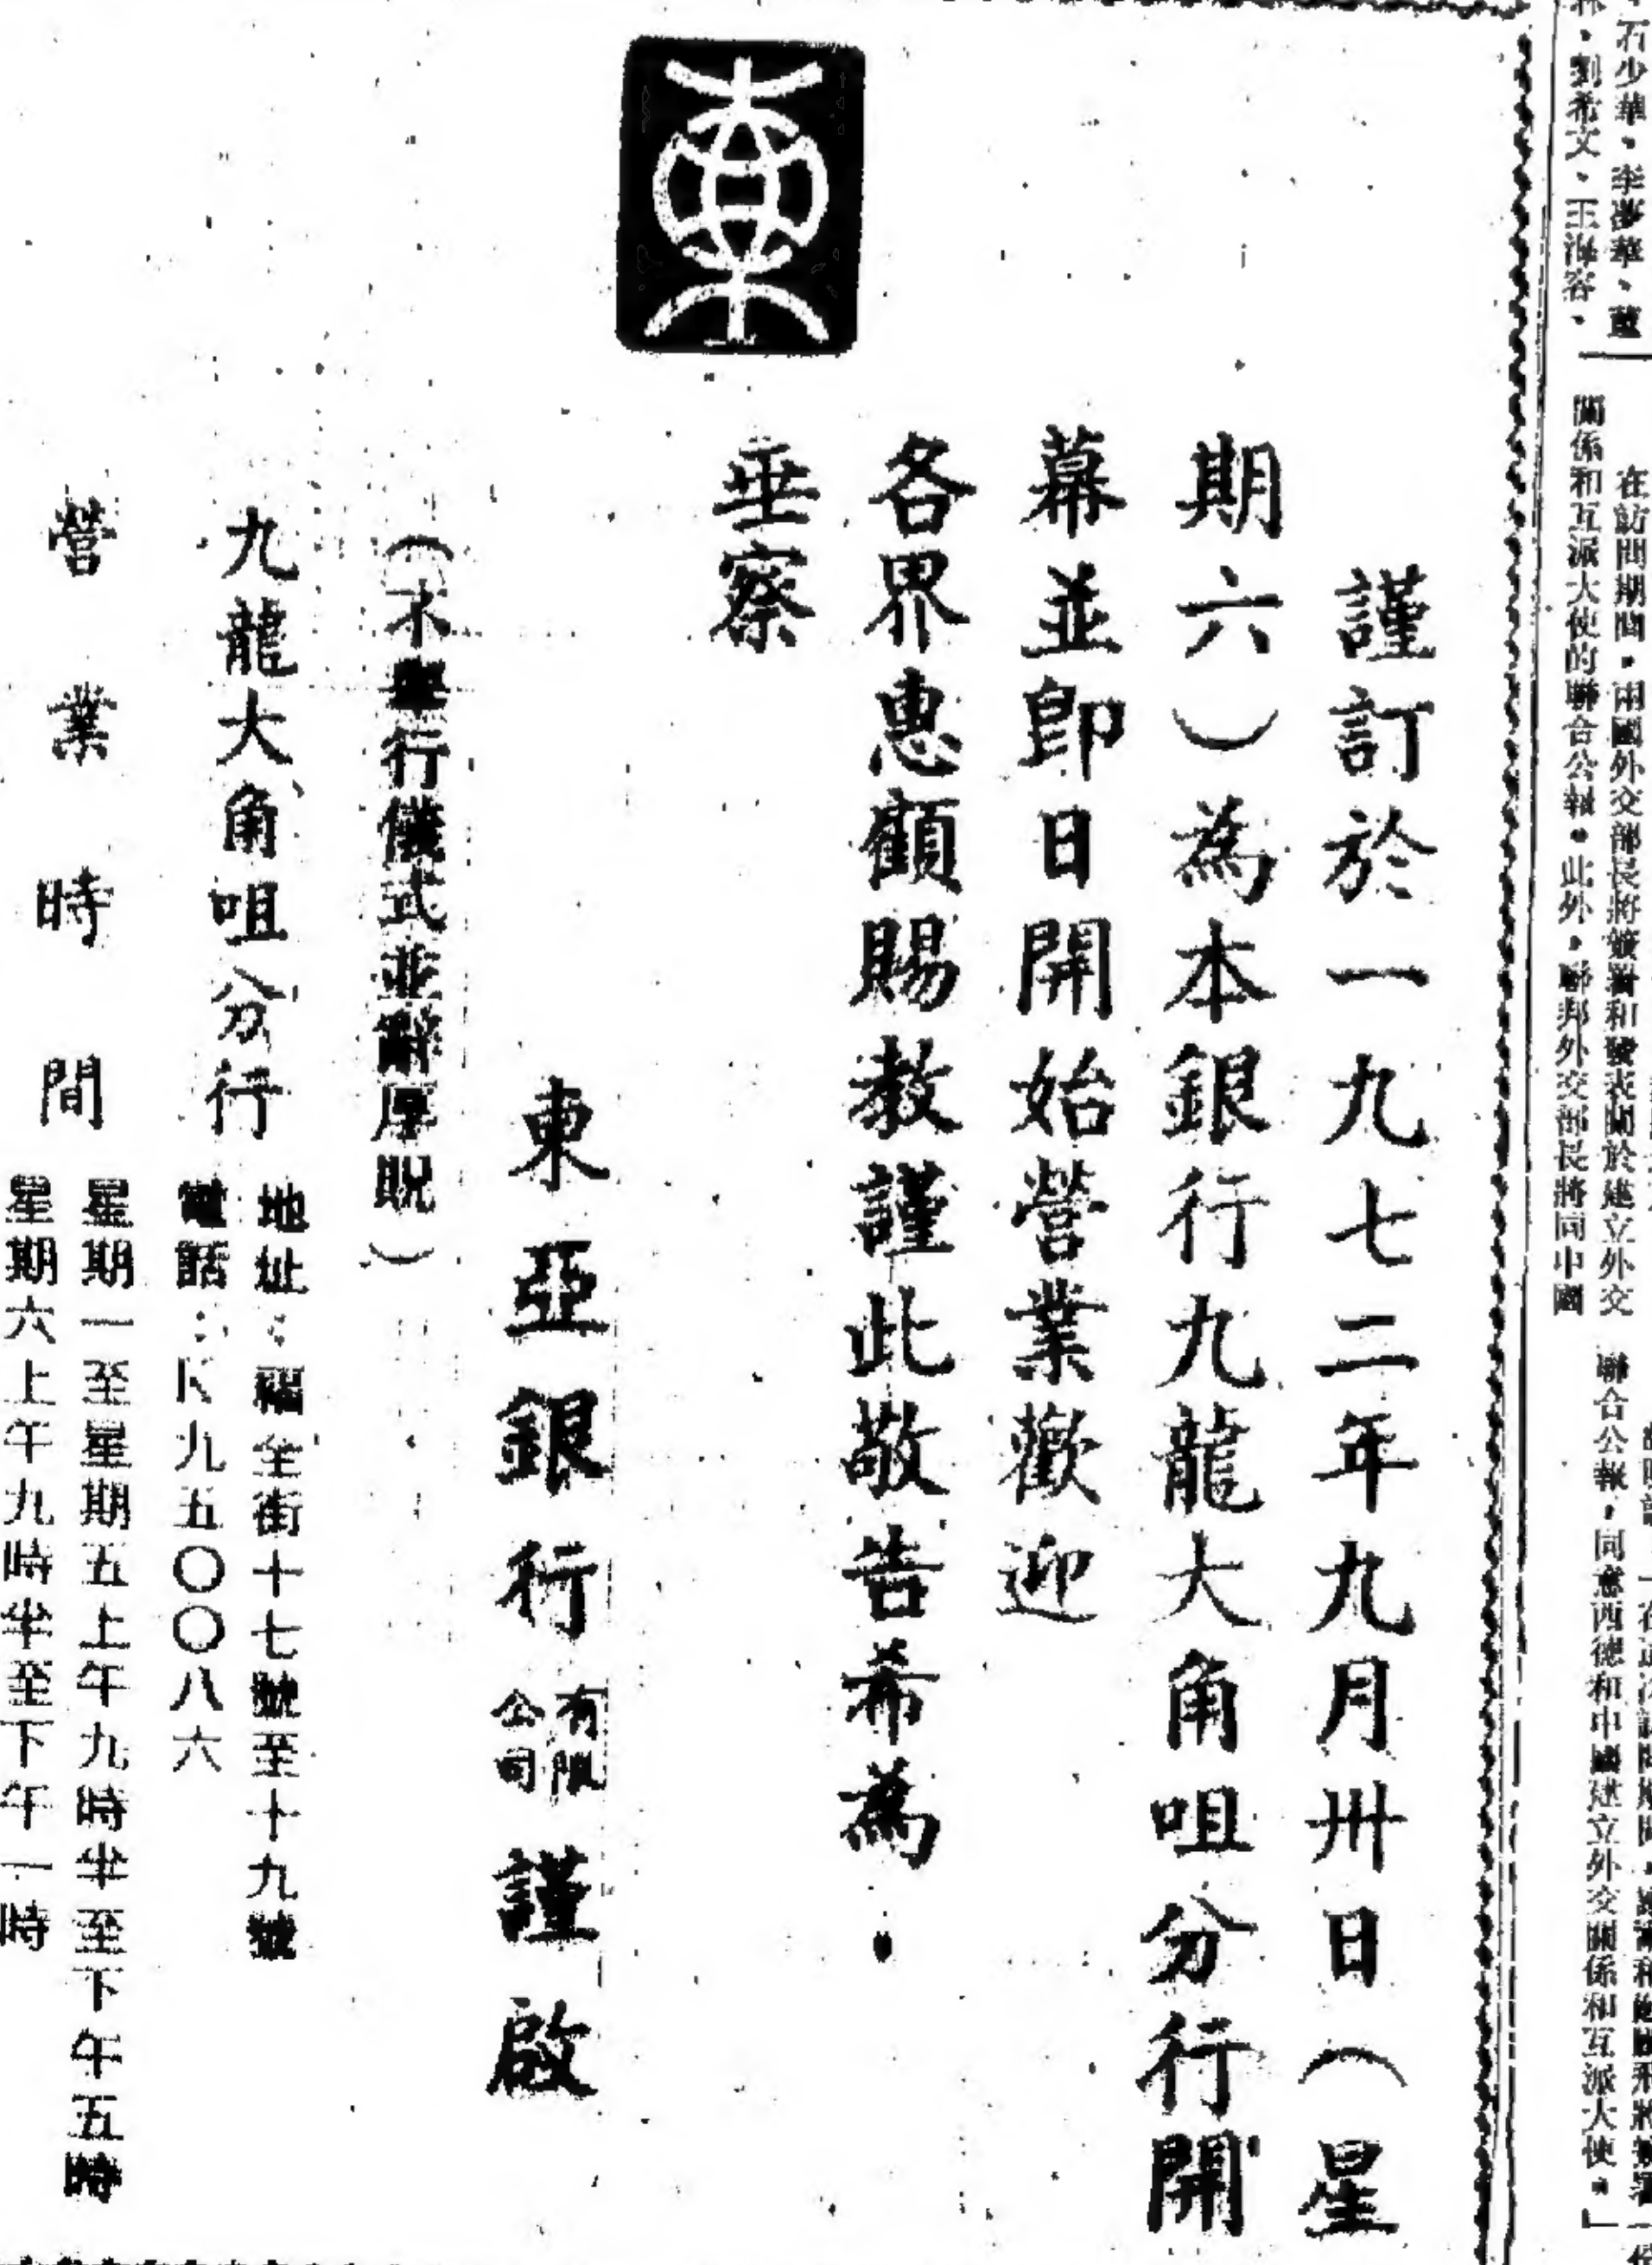 石少華、李夢華、
劉希文、王海容、
在訪問期間，兩國外交部長將簽署和發表關於建立外交
關係和互派大使的聯合公報。此外，聯邦外交部長將同中國
聯合公報，同意西德和中國建立外交關係和互派大使。」
謹訂於一九七二年九月卅日（星
期六）為本銀行九龍大角咀分行開
幕並即日開始營業歡迎
各界惠顧賜教謹此敬告希為
垂察
東亞銀行有限公司謹啟
（不舉行儀式並辭厚貺）
九龍大角咀分行
地址：福全街十七號至十九號
電話：K九五〇〇八六
營業時間
星期一至星期五上午九時半至下午五時
星期六上午九時半至下午一時